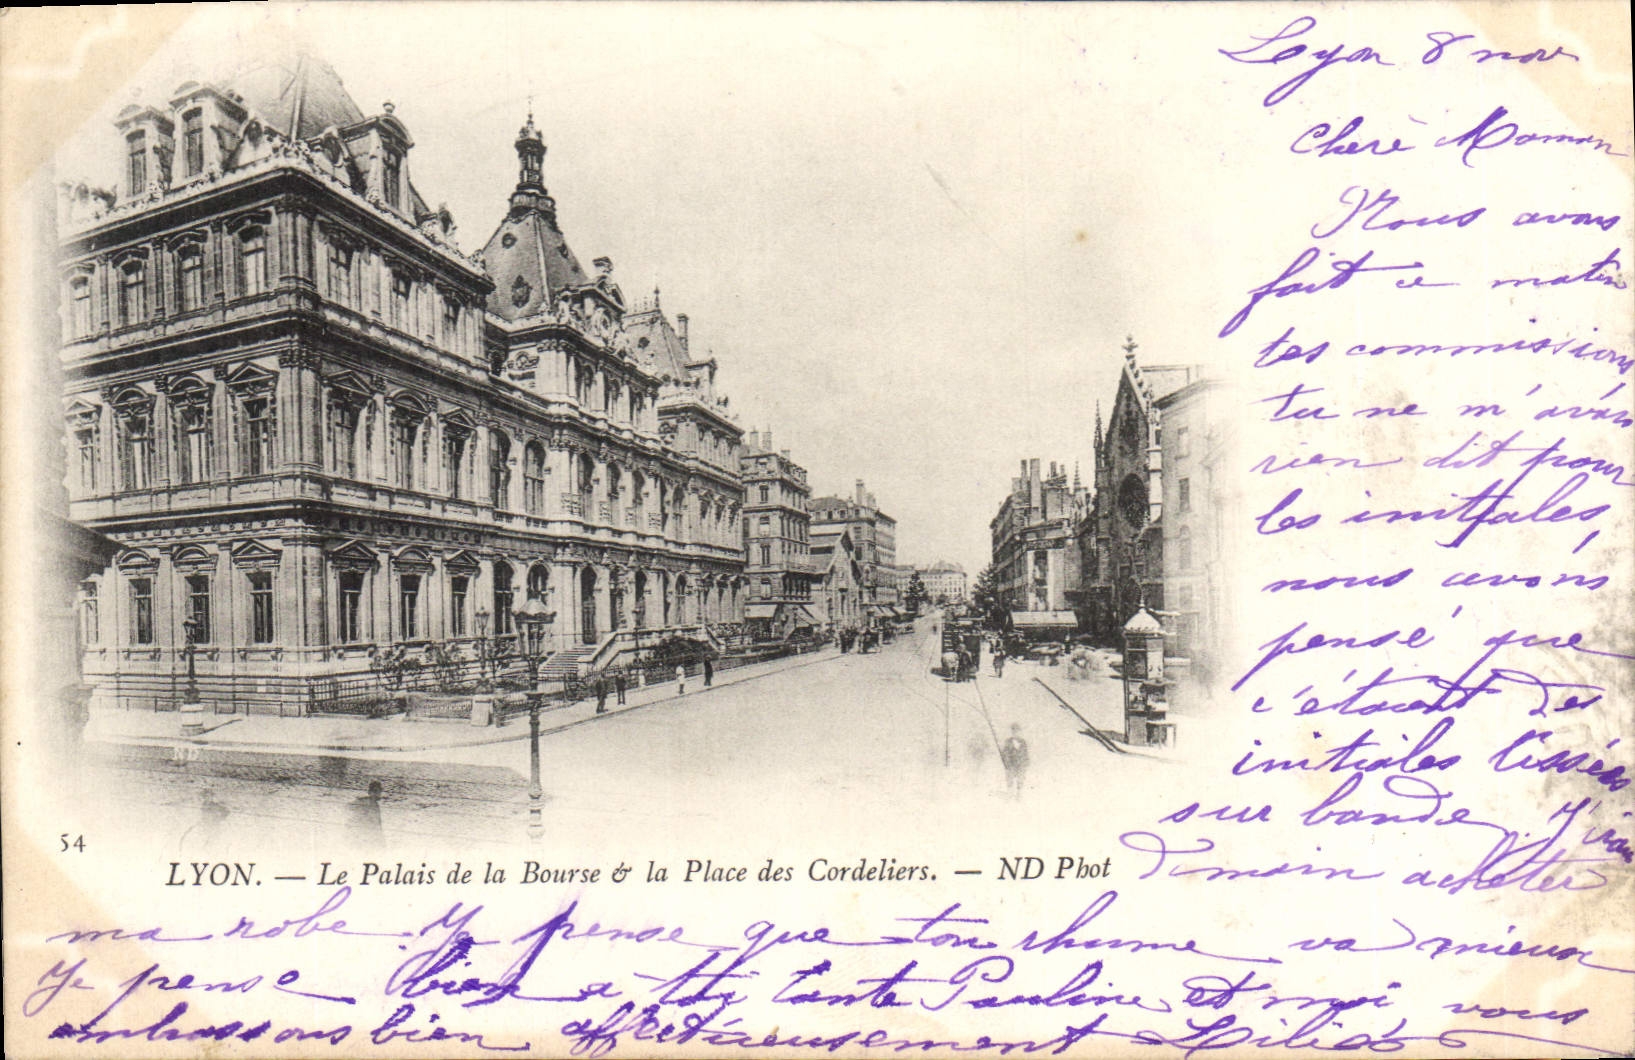 Lyon 8 nov
Cherè Maman
Nous avons
fait ce matin
tes commissions
tu ne m'avais
rien dit pour
les initiales,
nous avons
pensé que
c'étaient des
initiales tissées
sur bande, J'irai
demain acheter
54
LYON. — Le Palais de la Bourse & la Place des Cordeliers. — ND Phot
ma robe. Je pense que ton rhume va mieux
Je pense bien a toi tante Pauline et moi vous
embrassons bien affectueusement